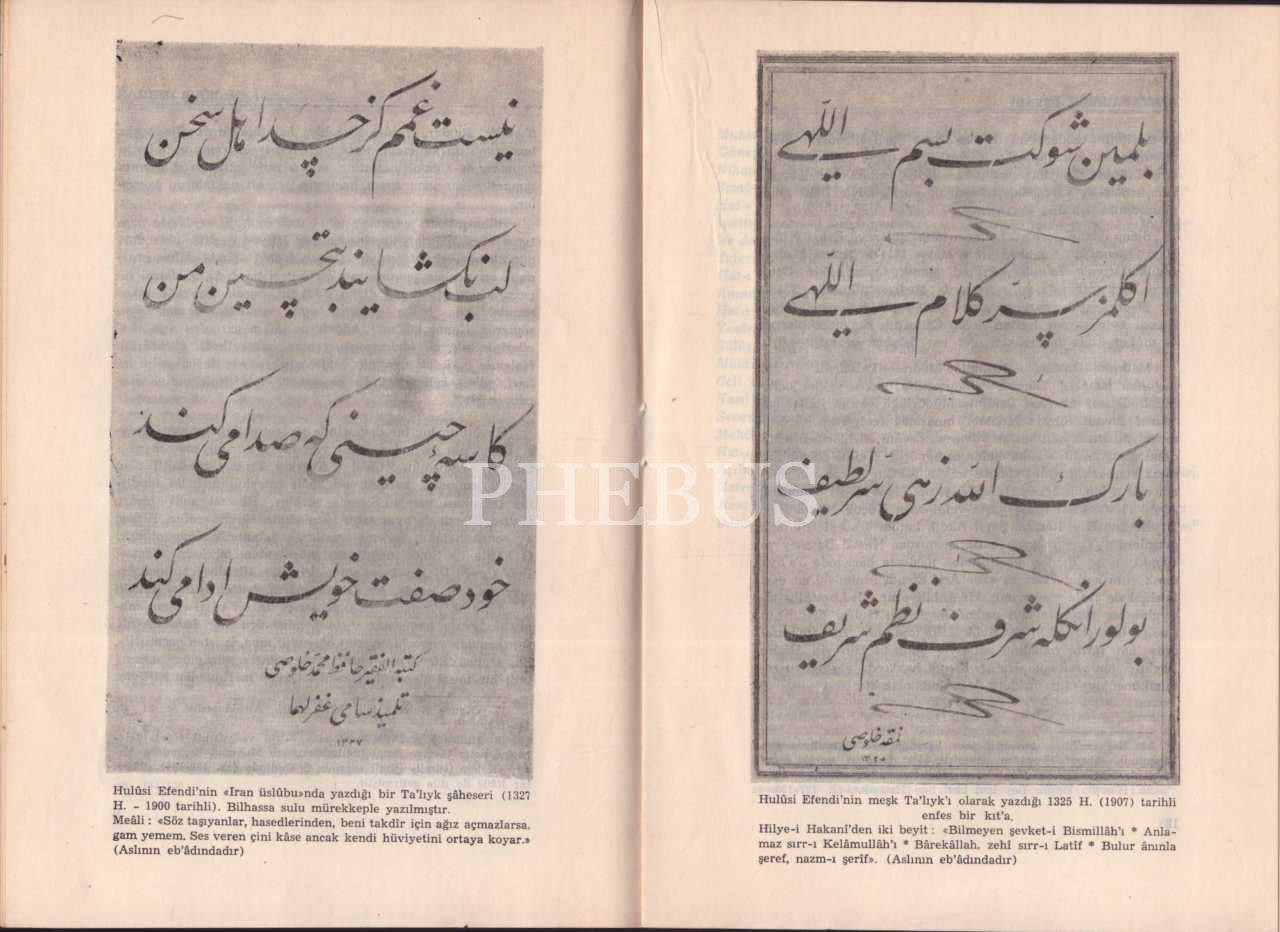 نیست غمم گرچه اهل سخن
لب نگشایند بتحسین من
کاسهٔ چینی که صدا می کند
خود صفت خویش ادا می کند
کتبه الفقیر حافظ محمد خلوصی
تلمیذ سامی غفر لهما
۱۳۲۷
Hulûsi Efendi'nin «Iran üslûbu»nda yazdığı bir Ta'lıyk şâheseri (1327
H. - 1900 tarihli). Bilhassa sulu mürekkeple yazılmıştır.
Meâli : «Söz taşıyanlar, hasedlerinden, beni takdîr için ağız açmazlarsa,
gam yemem. Ses veren çini kâse ancak kendi hüviyetini ortaya koyar.»
(Aslının eb'âdındadır)
بلمین شوکت بسم اللهی
اکلمز سرّ کلام اللهی
بارک الله زهی سرّ لطیف
بولور انکله شرف نظم شریف
نمقه خلوصی
۱۳۲۵
Hulûsi Efendi'nin meşk Ta'lıyk'ı olarak yazdığı 1325 H. (1907) tarihli
enfes bir kıt'a.
Hilye-i Hakanî'den iki beyit : «Bilmeyen şevket-i Bismillâh'ı * Anla-
maz sırr-ı Kelâmullâh'ı * Bârekâllah, zehî sırr-ı Latîf * Bulur ânınla
şeref, nazm-ı şerîf». (Aslının eb'âdındadır)
PHEBUS